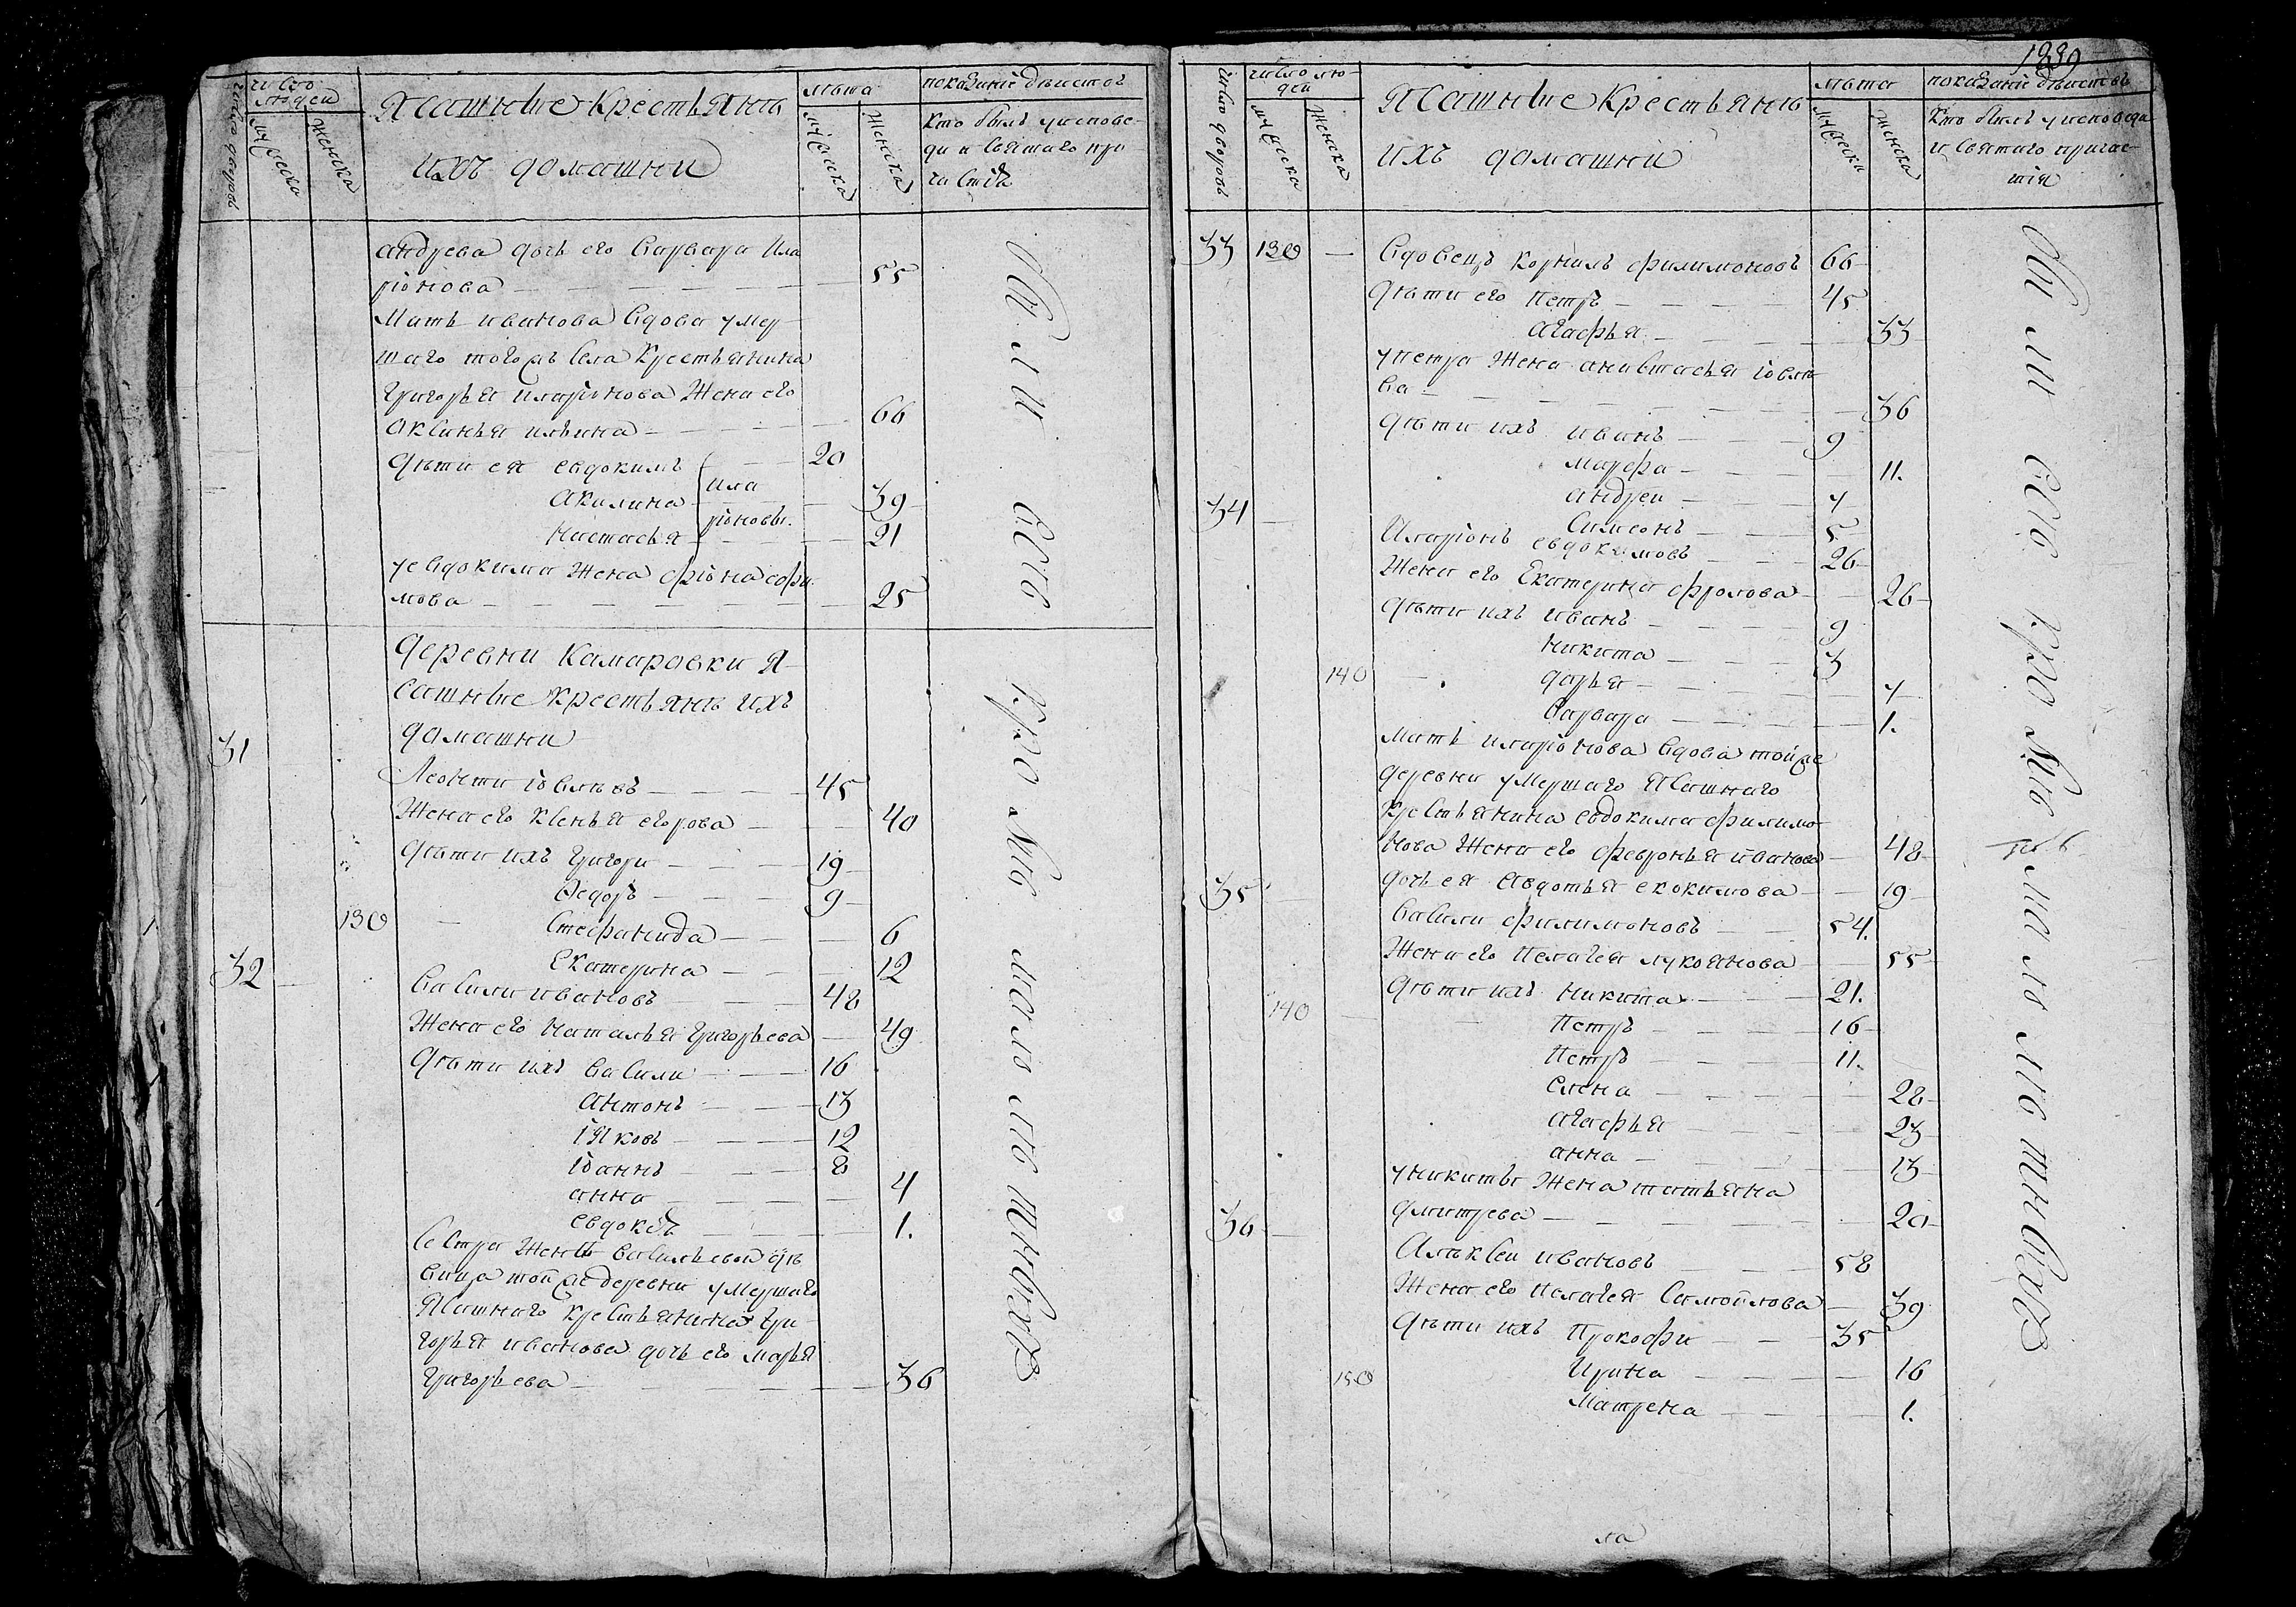 число дворовъ
число людей
мужеска
женска
Ясашные Крестьяне
ихъ домашни
лѣта
мужеска
женска
показание дѣйствъ
кто былъ у испове-
ди и святаго при
частія
андрева дочь его Варвара Ила
ріонова 55
Мать иванова вдова умер
шаго тогожъ села крестьянина
григорья иларіонова Жена его
аксинья ильина 66
дѣти ея евдокимъ 20
акилина ила 39
настасья ріоновы. 21
у евдокима Жена
мова 25
деревни Камаровки я
сашные крестьяне ихъ
домашни
31
Леонти іевлевъ 45
Жена его ксенья егорова 40
дѣти ихъ григори 19
Ѳедоръ 9
130 Стефанида 6
Екатерина 12
32
Василий ивановъ 48
Жена его наталья григорьева 49
дѣти ихъ василии 16
антонъ 13
іяковъ 12
іоаннъ 8
анна 4
евдокія 1.
Сестра Жены Васильевой дѣ
вица той же деревни умершаго
ясашнаго крестьянина гри
горья иванова дочь его марья
григорьева 36
Были все кромѣ малолѣтныхъ
1239
число дворовъ
число лю-
дей
мужеска
женска
Ясашные Крестьяне
ихъ домашни
лѣта
мужеска
женска
показание дѣйствъ
Кто былъ у исповеди
и святаго причас-
тія
33 130 Вдовецъ корнилъ филимоновъ 66
дѣти его петръ 45
агафья 33
у петра Жена анастасья іевле
ва 36
дѣти ихъ иванъ 9
марфа 11.
андреи 7
34
Симеонъ 5
Иларіонъ евдокимовъ 26
Жена его Екатерина фролова 26
дѣти ихъ иванъ 9
никита 3
140 дарья 7
варвара 1.
мать иларіонова вдова той же
деревни умершаго ясашнаго
крестьянина евдокима филимо
нова Жена его февронья иванова 48
35
дочь ея авдотья евдокимова 19
василии филимоновъ 54.
Жена его пелагея лукоянова 55
дѣти ихъ никита 21.
140 петръ 16
петръ 11.
елена 28
агафья 23
анна 13
у никиты Жена татьяна
дмитрева 20
36
Алексеи ивановъ 58
Жена его пелагея самойлова 39
дѣти ихъ Прокофи 35
150 Ирина 16
Матрена 1.
Были все кромѣ малолѣтныхъ
ла